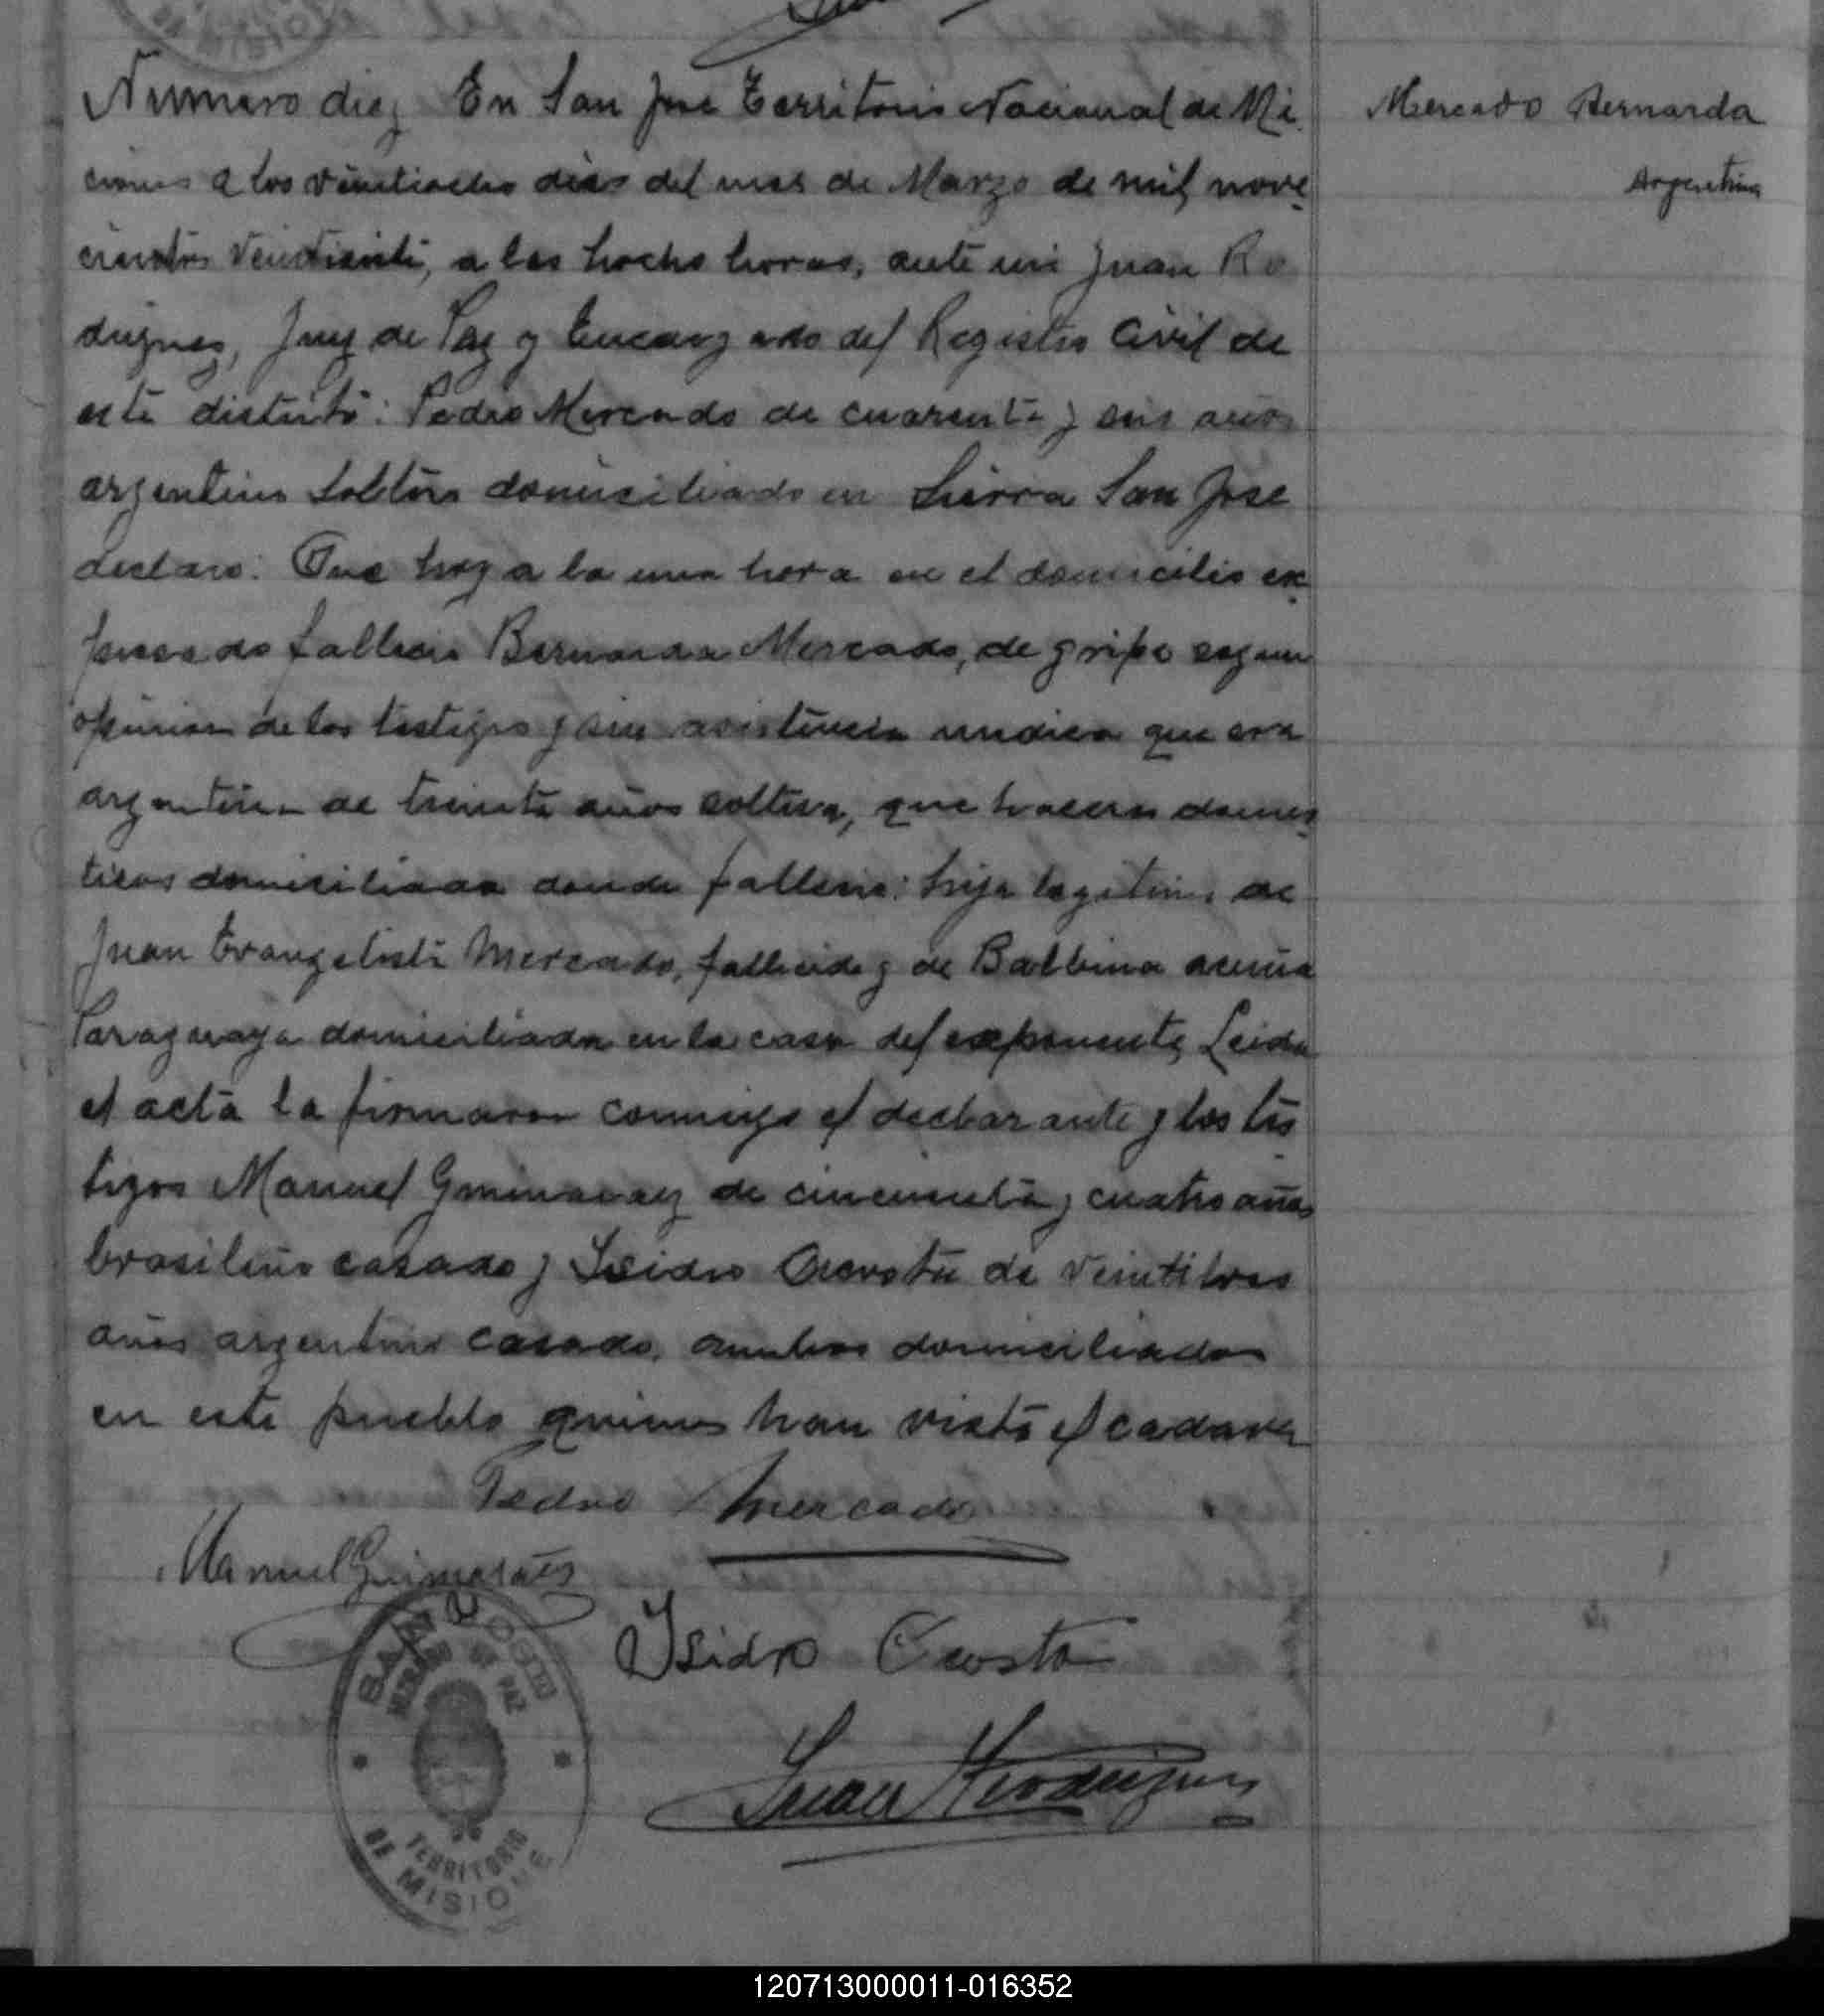 Numero diez En San José Territorio Nacional de Mi
ciones a los veintiocho dias del mes de Marzo de mil nove
cientos veintisiete, a las hocho horas, ante mi Juan Ro
driguez, Juez de Paz y Encargado del Registro Civil de
este distrito: Pedro Mercado de cuarenta y seis años
argentino soltero domiciliado en Sierra San José
declaro: Que hoy a la una hora en el domicilio ex
presado fallecio Bernarda Mercado, de gripe segun
opinion de los testigos y sin asistencia medica que era
argentina de treinta años soltera, que haceres domes
ticos domiciliada donde fallecio: hija legitima de
Juan Evangelista Mercado, fallecido y de Balbina acuña
Paraguaya domiciliada en la casa del exponente, Leida
el acta la firmaron conmigo el declarante y los tes
tigos Manuel de cincuenta y cuatro años
brasileño casado y Isidro Acosta de veintitres
años argentino casado, ambos domiciliados
en este pueblo quienes han visto el cadaver
Pedro Mercado
Manuel Guimaraes
Isidro Acosta
Juan Rodriguez
SAN JOSE
JUZGADO DE PAZ
TERRITORIO
DE MISIONES
Mercado Bernarda
Argentina
120713000011-016352